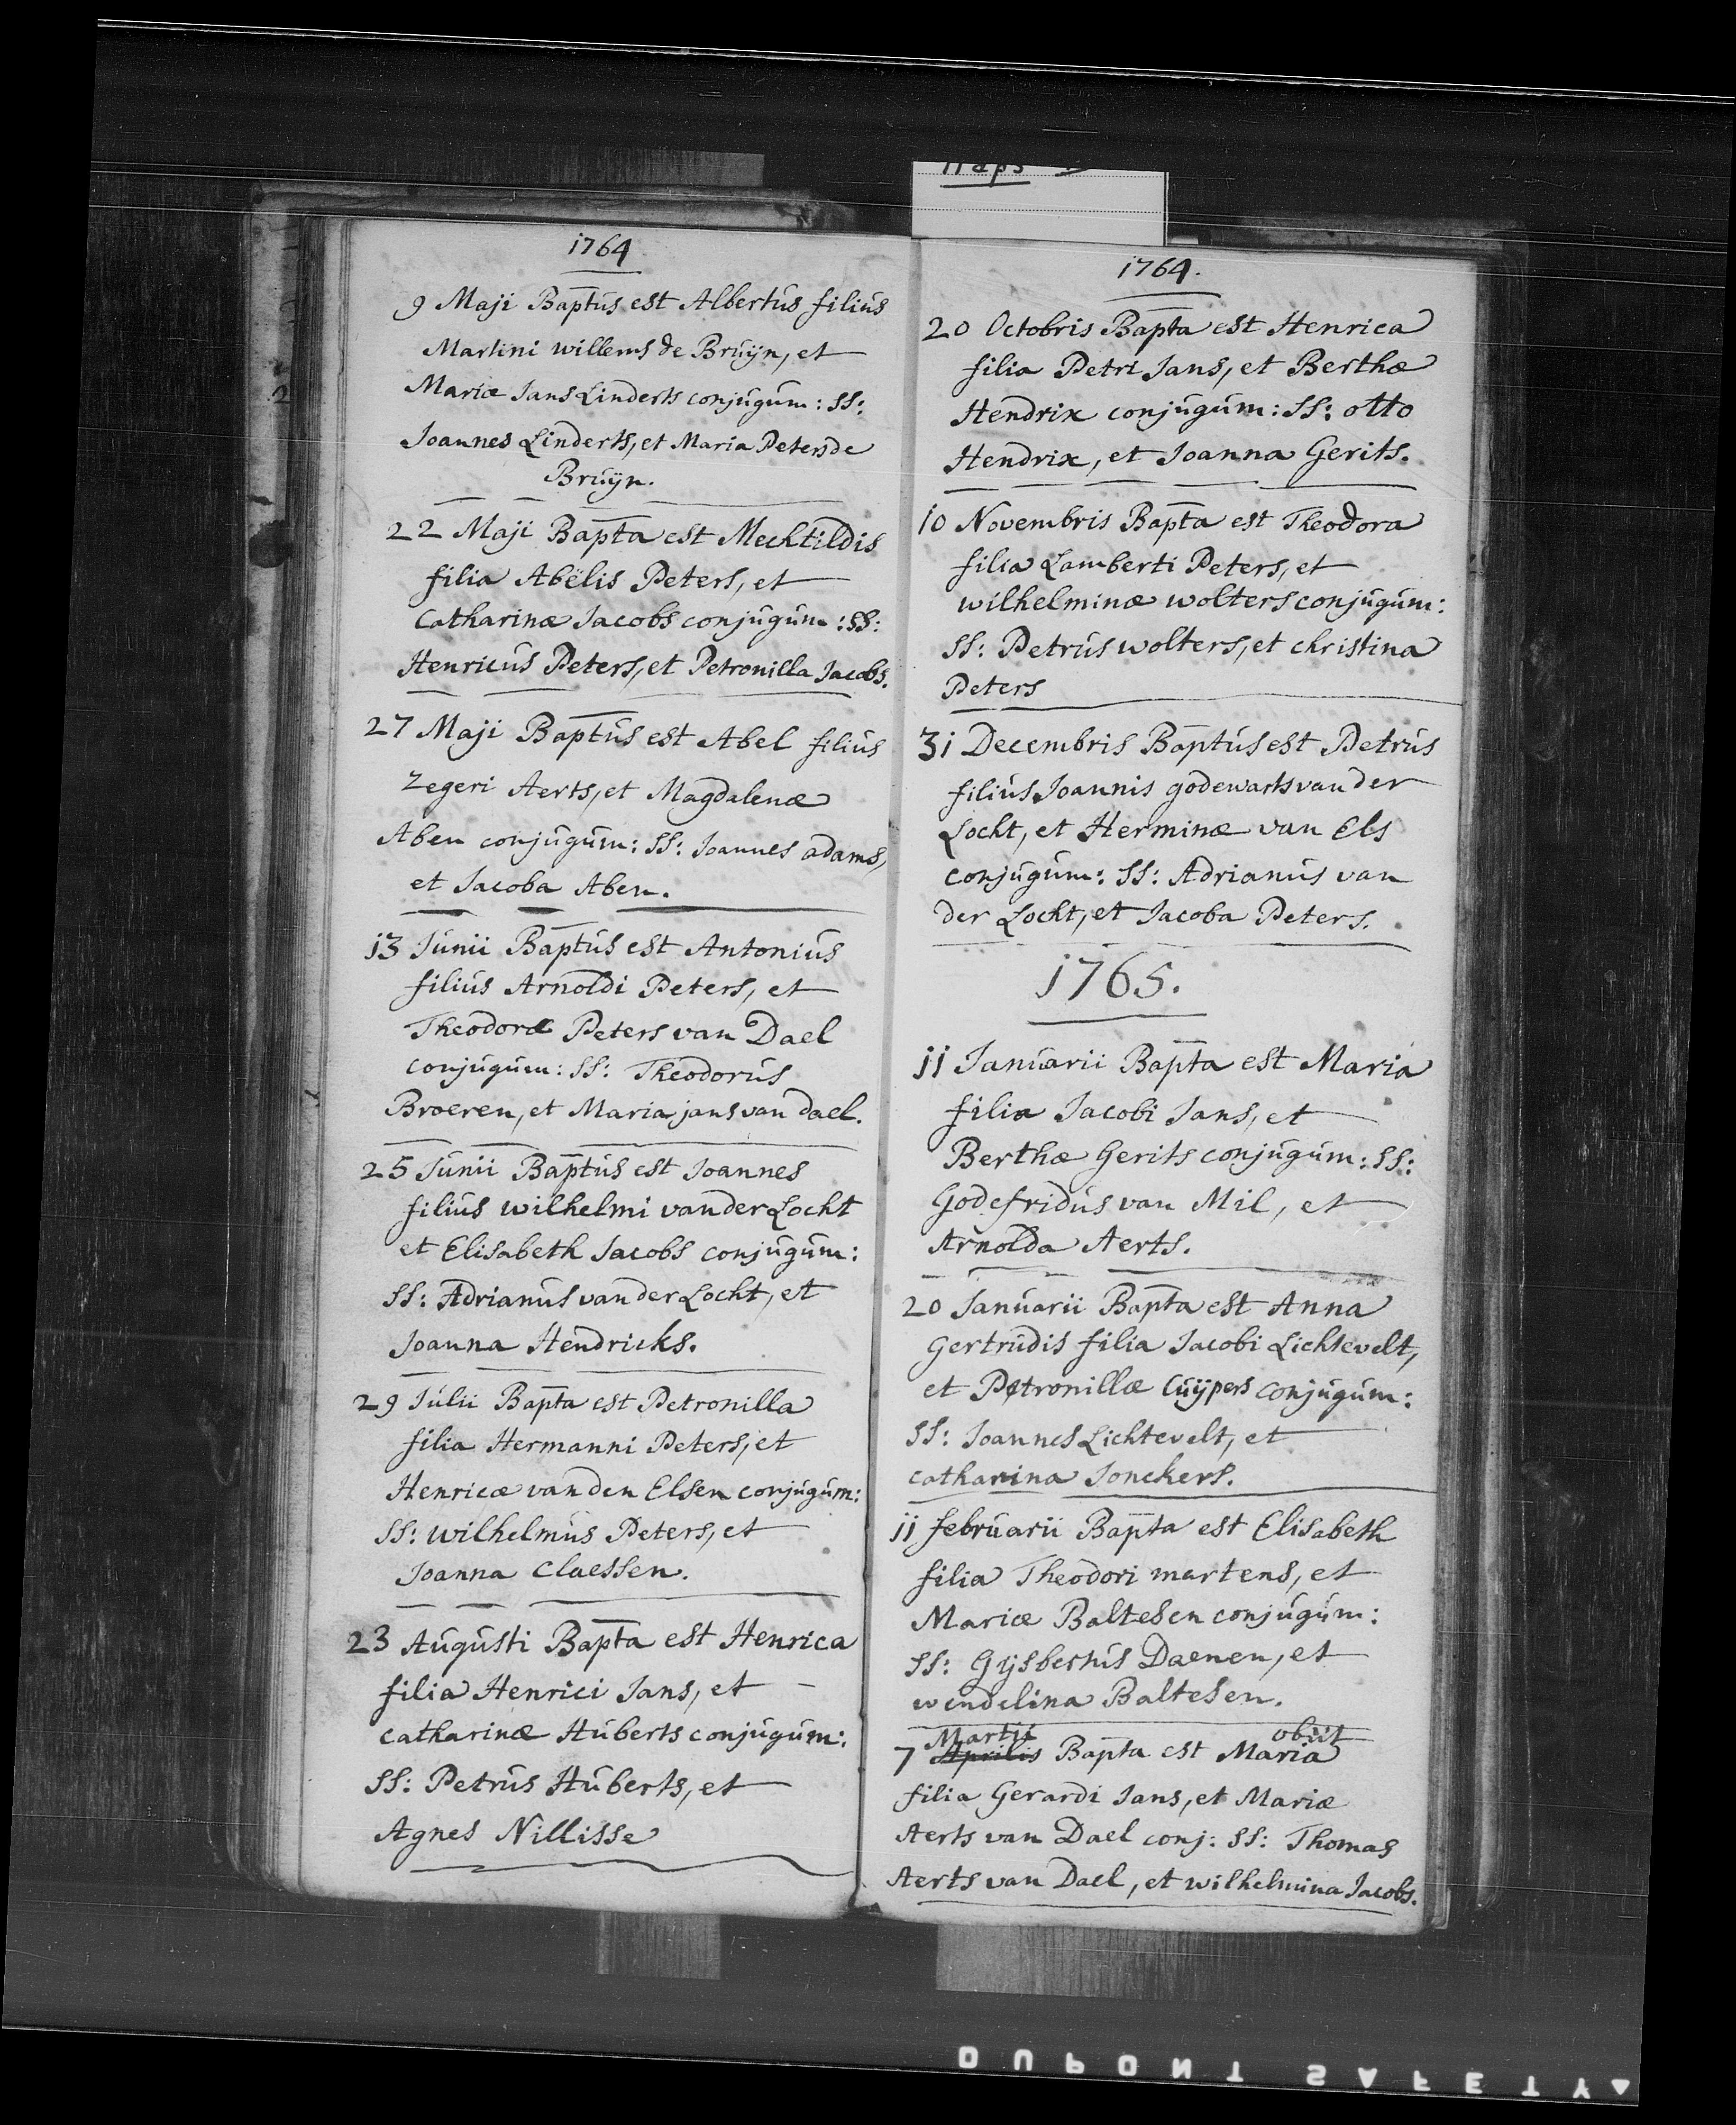 1764
9 Maji Baptus est Albertus filius
Martini willems de Bruijn, et
Mariæ Jans Linderts conjugum: SS:
Joannes Linderts, et Maria Peters de
Bruijn.
22 Maji Bapta est Mechtildis
filia Abëlis Peters, et
Catharinæ Jacobs conjugum: SS:
Henricus Peters, et Petronilla Jacobs.
27 Maji Baptus est Abel filius
Zegeri Aerts, et Magdalenæ
Aben conjugum: SS: Joannes adams,
et Jacoba Aben.
13 Junii Baptus est Antonius
filius Arnoldi Peters, et
Theodoræ Peters van Dael
conjugum: SS: Theodorus
Broeren, et Maria jans van dael.
25 Junii Baptus est Joannes
filius wilhelmi van der Locht
et Elisabeth Jacobs conjugum:
SS: Adrianus van der Locht, et
Joanna Hendricks.
29 Julii Bapta est Petronilla
filia Hermanni Peters, et
Henricæ van den Elsen conjugum:
SS: wilhelmus Peters, et
Joanna Claessen.
23 Augusti Bapta est Henrica
filia Henrici Jans, et
catharinæ Huberts conjugum:
SS: Petrus Huberts, et
Agnes Nillisse
Haps
1764.
20 Octobris Bapta est Henrica
filia Petri Jans, et Berthæ
Hendrix conjugum: SS: otto
Hendrix, et Joanna Gerits.
10 Novembris Bapta est Theodora
filia Lamberti Peters, et
wilhelminæ wolters conjugum:
SS: Petrus wolters, et christina
Peters
31 Decembris Baptus est Petrus
filius Joannis godewarts van der
Locht, et Herminæ van Els
conjugum: SS: Adrianus van
der Locht, et Jacoba Peters.
1765.
11 Januarii Bapta est Maria
filia Jacobi Jans, et
Berthæ Gerits conjugum: SS:
Godefridus van Mil, et
Arnolda Aerts.
20 Januarii Bapta est Anna
Gertrudis filia Jacobi Lichtevelt,
et Petronillæ Cuÿpers conjugum:
SS: Joannes Lichtevelt, et
catharina Jonckers.
11 februarii Bapta est Elisabeth
filia Theodori martens, et
Mariæ Baltesen conjugum:
SS: Gijsbertus Daenen, et
wendelina Baltesen.
Martii obiit
7 Aprilis Bapta est Maria
filia Gerardi Jans, et Mariæ
Aerts van Dael conj: SS: Thomas
Aerts van Dael, et wilhelmina Jacobs.
DUPONT SAFETY